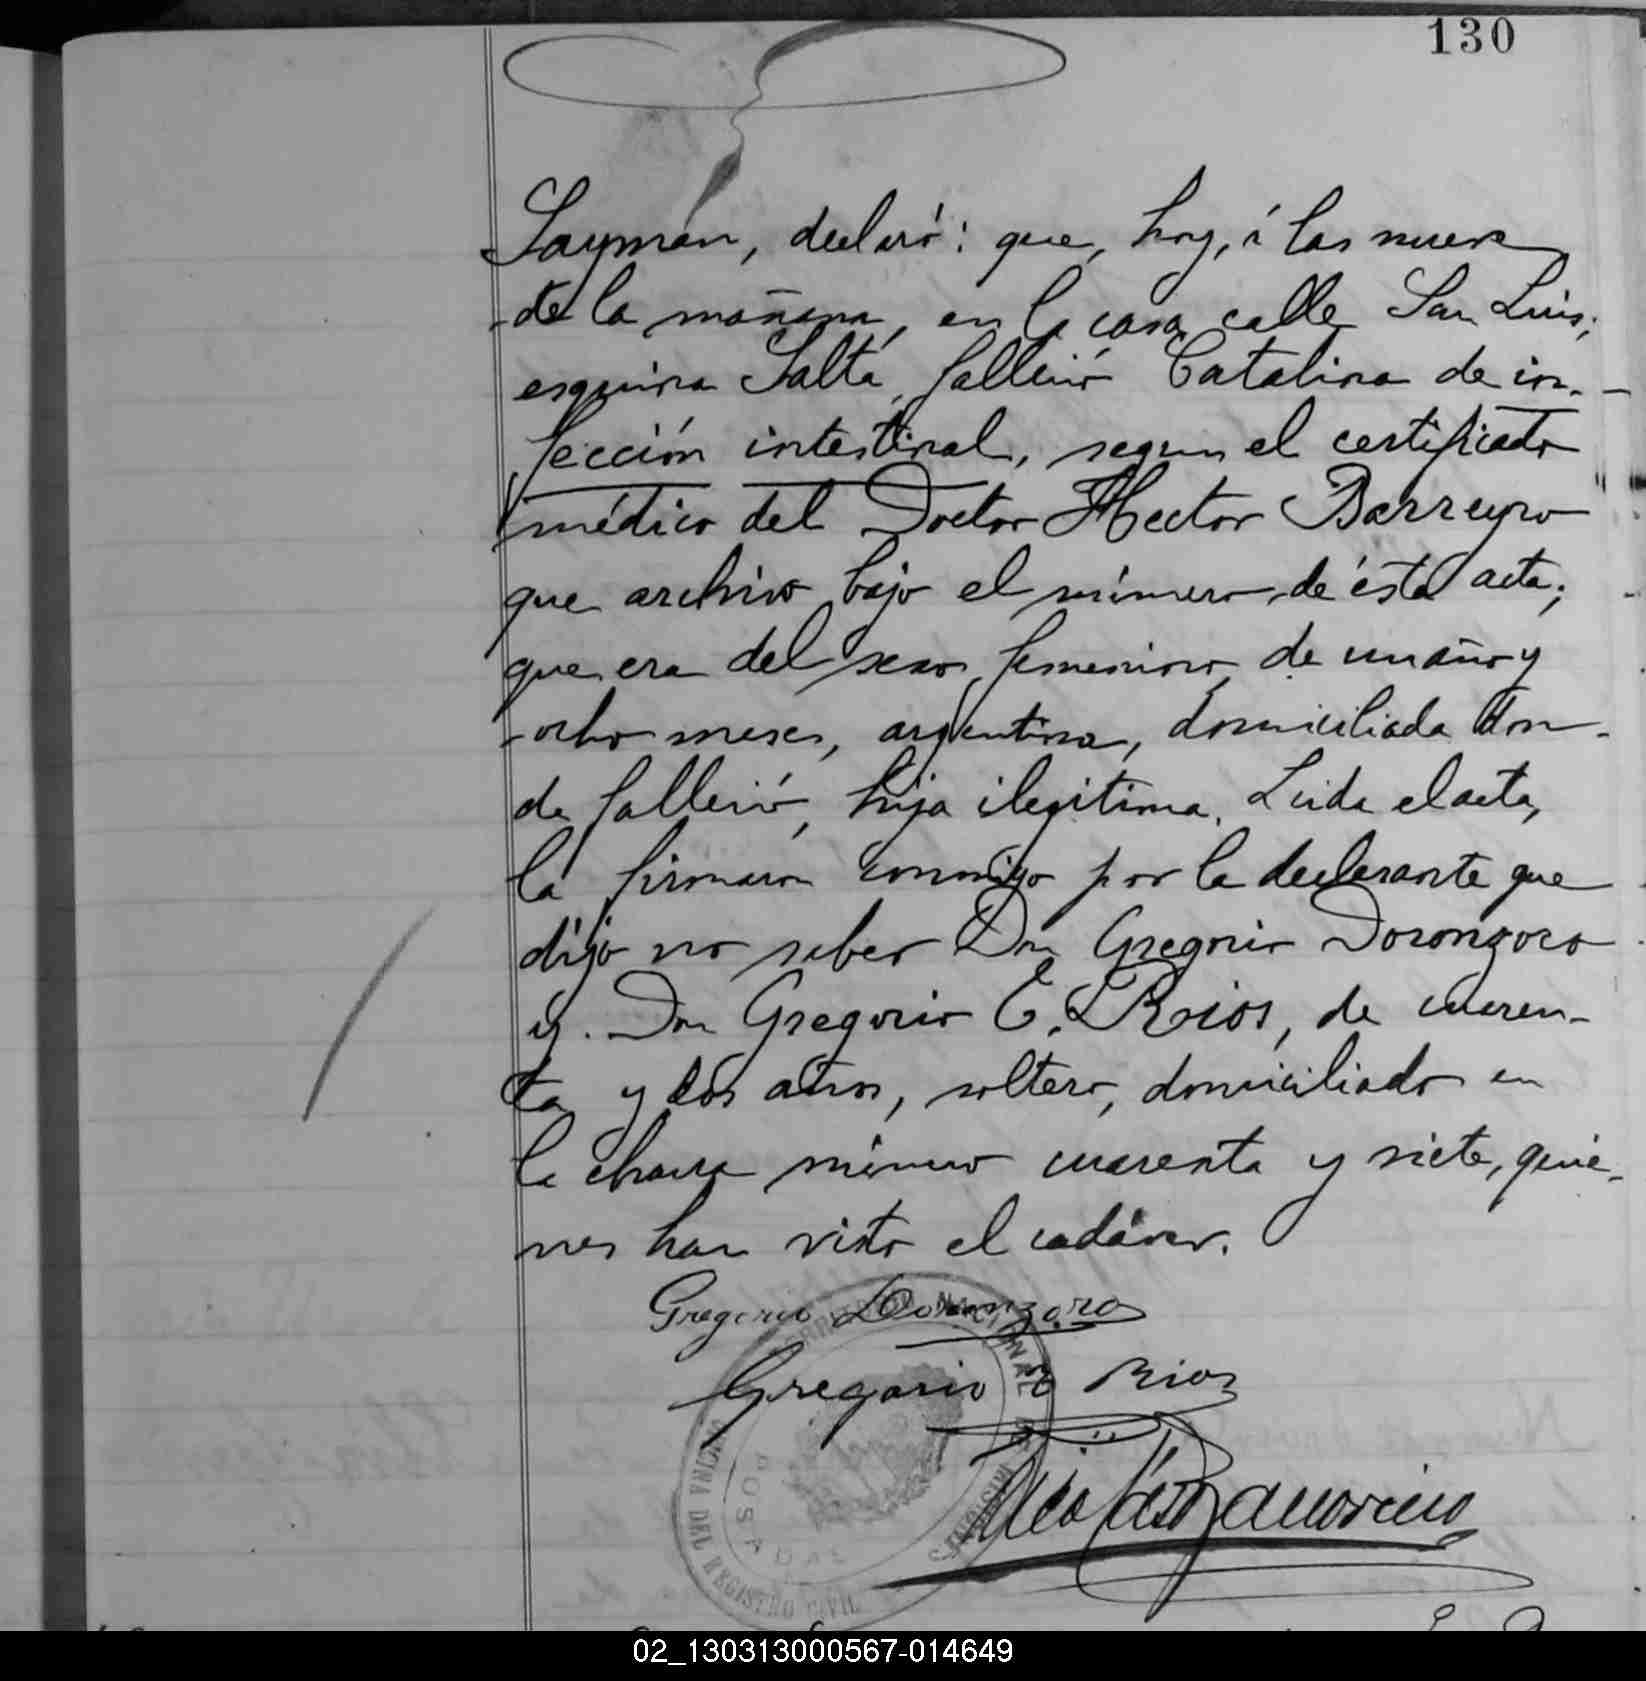 130
Laymán, declaró: que, hoy, á las nueve
de la mañana, en la casa calle San Luis,
esquina Salta, falleció Catalina de in-
fección intestinal, segun el certificado
médico del Doctor Hector Barreyro
que archivo bajo el número de ésta acta;
que era del sexo femenino, de un año y
ocho meses, argentina, domiciliada don-
de falleció, hija ilegitima. Leida el acta,
la firmaron conmigo por la declarante que
dijo no saber Don Gregorio Doronzoro
y Don Gregorio E. Rios, de cuaren-
ta y dós años, soltero, domiciliado en
la chacra número cuarenta y siete, quie-
nes han visto el cadáver.
Gregorio Doronzoro
Gregorio E Rios
OFICINA DEL REGISTRO CIVIL
POSADAS
02_130313000567-014649